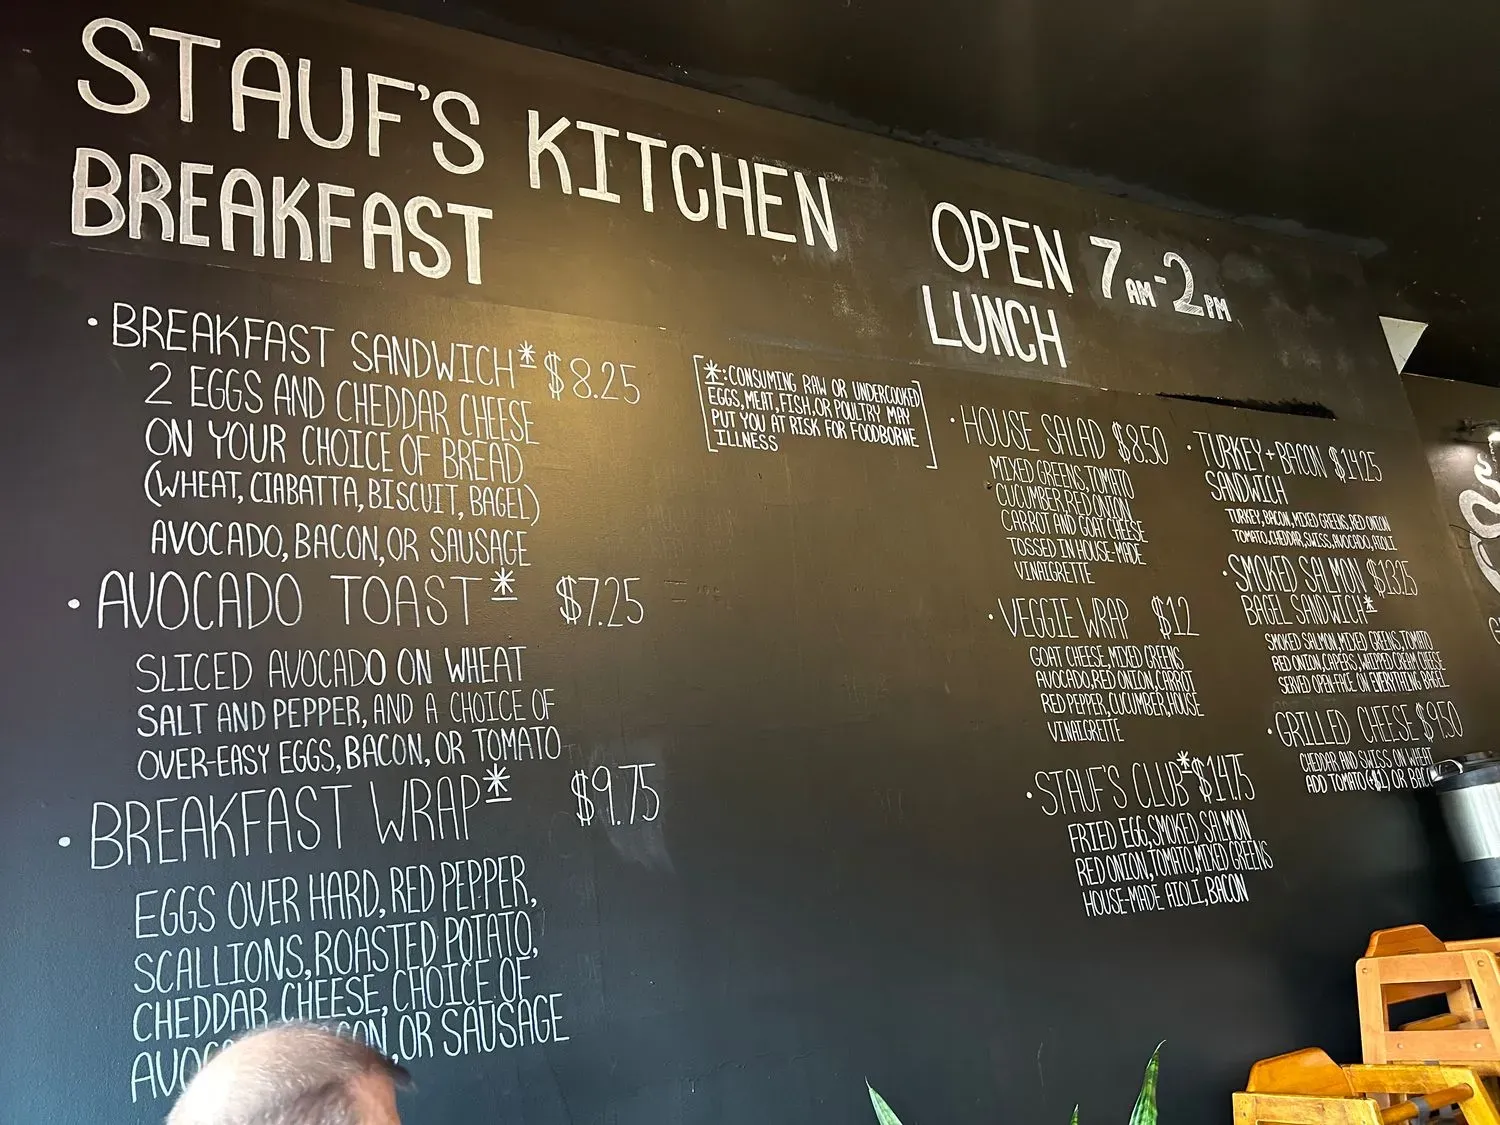 STAUF'S KITCHEN
BREAKFAST
• BREAKFAST SANDWICH* $8.25
2 EGGS AND CHEDDAR CHEESE
ON YOUR CHOICE OF BREAD
(WHEAT, CIABATTA, BISCUIT, BAGEL)
AVOCADO, BACON, OR SAUSAGE
• AVOCADO TOAST* $7.25
SLICED AVOCADO ON WHEAT
SALT AND PEPPER, AND A CHOICE OF
OVER-EASY EGGS, BACON, OR TOMATO
• BREAKFAST WRAP* $9.75
EGGS OVER HARD, RED PEPPER,
SCALLIONS, ROASTED POTATO,
CHEDDAR CHEESE, CHOICE OF
OR SAUSAGE
[*: CONSUMING RAW OR UNDERCOOKED
EGGS, MEAT, FISH, OR POULTRY MAY
PUT YOU AT RISK FOR FOODBORNE
ILLNESS]
OPEN 7AM-2PM
LUNCH
• HOUSE SALAD $8.50
MIXED GREENS, TOMATO
CUCUMBER, RED ONION
CARROT AND GOAT CHEESE
TOSSED IN HOUSE-MADE
VINAIGRETTE
• VEGGIE WRAP $12
GOAT CHEESE, MIXED GREENS
AVOCADO, RED ONION, CARROT
RED PEPPER, CUCUMBER, HOUSE
VINAIGRETTE
• STAUF'S CLUB* $14.75
FRIED EGG, SMOKED SALMON
RED ONION, TOMATO, MIXED GREENS
HOUSE-MADE AIOLI, BACON
• TURKEY + BACON $14.25
SANDWICH
TURKEY, BACON, MIXED GREENS, RED ONION
TOMATO, CHEDDAR, SWISS, AVOCADO, AIOLI
• SMOKED SALMON $13.25
BAGEL SANDWICH*
SMOKED SALMON, MIXED GREENS, TOMATO
RED ONION, CAPERS, WHIPPED CREAM CHEESE
SERVED OPEN-FACE ON EVERYTHING BAGEL
• GRILLED CHEESE $9.50
CHEDDAR AND SWISS ON WHEAT
ADD TOMATO (+$1) OR